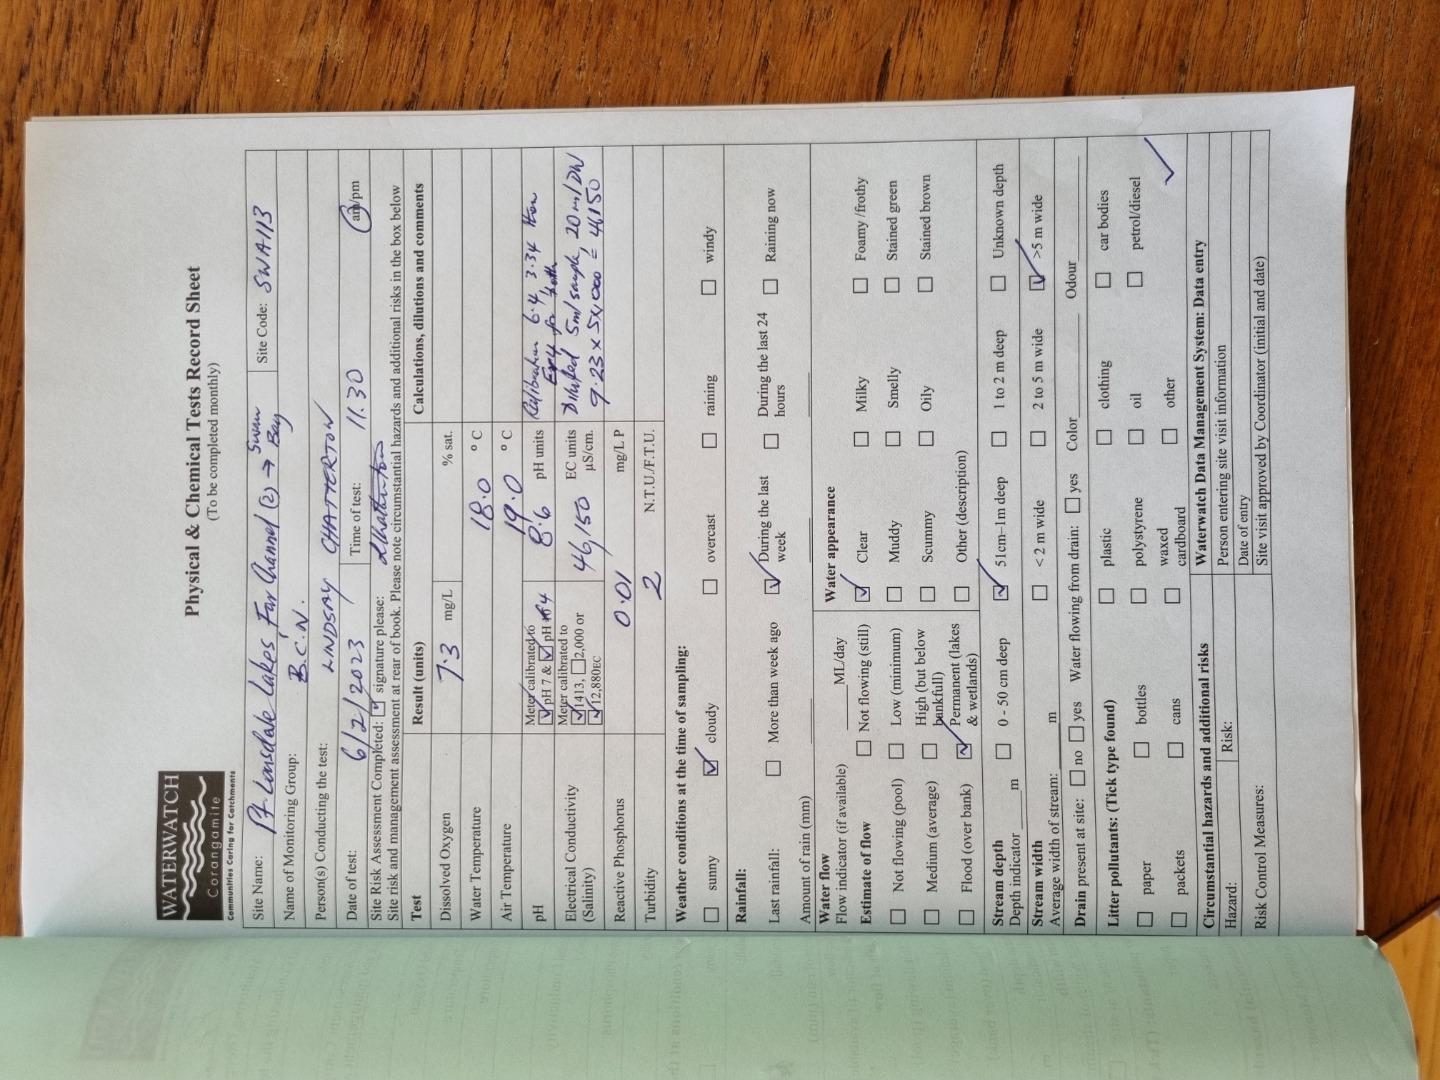 WATERWATCH
Corangamite
Communities Caring for Catchments
Physical & Chemical Tests Record Sheet
(To be completed monthly)
Site Name: Pt Lonsdale Lakes Far Channel (2) → Swan Bay Site Code: SWA113
Name of Monitoring Group: B.C.N.
Person(s) Conducting the test: LINDSAY CHATTERTON
Date of test: 6/2/2023 Time of test: 11.30 am/pm
Site Risk Assessment Completed: signature please: LChatterton
Site risk and management assessment at rear of book. Please note circumstantial hazards and additional risks in the box below
Test Result (units) Calculations, dilutions and comments
Dissolved Oxygen 7.3 mg/L % sat.
Water Temperature 18.0 °C
Air Temperature 19.0 °C
pH Meter calibrated to pH 7 & pH 4 8.6 pH units 6.4 3.34 for both
Electrical Conductivity (Salinity) Meter calibrated to 1413, 2,000 or 12,880EC 46,150 EC units µS/cm. Diluted 5ml sample, 20ml DW
9.23 x 5x,000 = 46,150
Reactive Phosphorus 0.01 mg/L P
Turbidity 2 N.T.U./F.T.U.
Weather conditions at the time of sampling:
sunny cloudy overcast raining windy
Rainfall:
Last rainfall: More than week ago During the last week During the last 24 hours Raining now
Amount of rain (mm)
Water flow
Flow indicator (if available) ML/day
Estimate of flow Not flowing (still)
Not flowing (pool) Low (minimum)
Medium (average) High (but below bankfull)
Flood (over bank) Permanent (lakes & wetlands)
Water appearance
Clear Milky Foamy /frothy
Muddy Smelly Stained green
Scummy Oily Stained brown
Other (description)
Stream depth
Depth indicator m 0 - 50 cm deep 51cm–1m deep 1 to 2 m deep Unknown depth
Stream width
Average width of stream: m < 2 m wide 2 to 5 m wide >5 m wide
Drain present at site: no yes Water flowing from drain: yes Color Odour
Litter pollutants: (Tick type found)
paper bottles plastic clothing car bodies
packets cans polystyrene oil petrol/diesel
waxed cardboard other
Circumstantial hazards and additional risks
Hazard: Risk:
Risk Control Measures:
Waterwatch Data Management System: Data entry
Person entering site visit information
Date of entry
Site visit approved by Coordinator (initial and date)